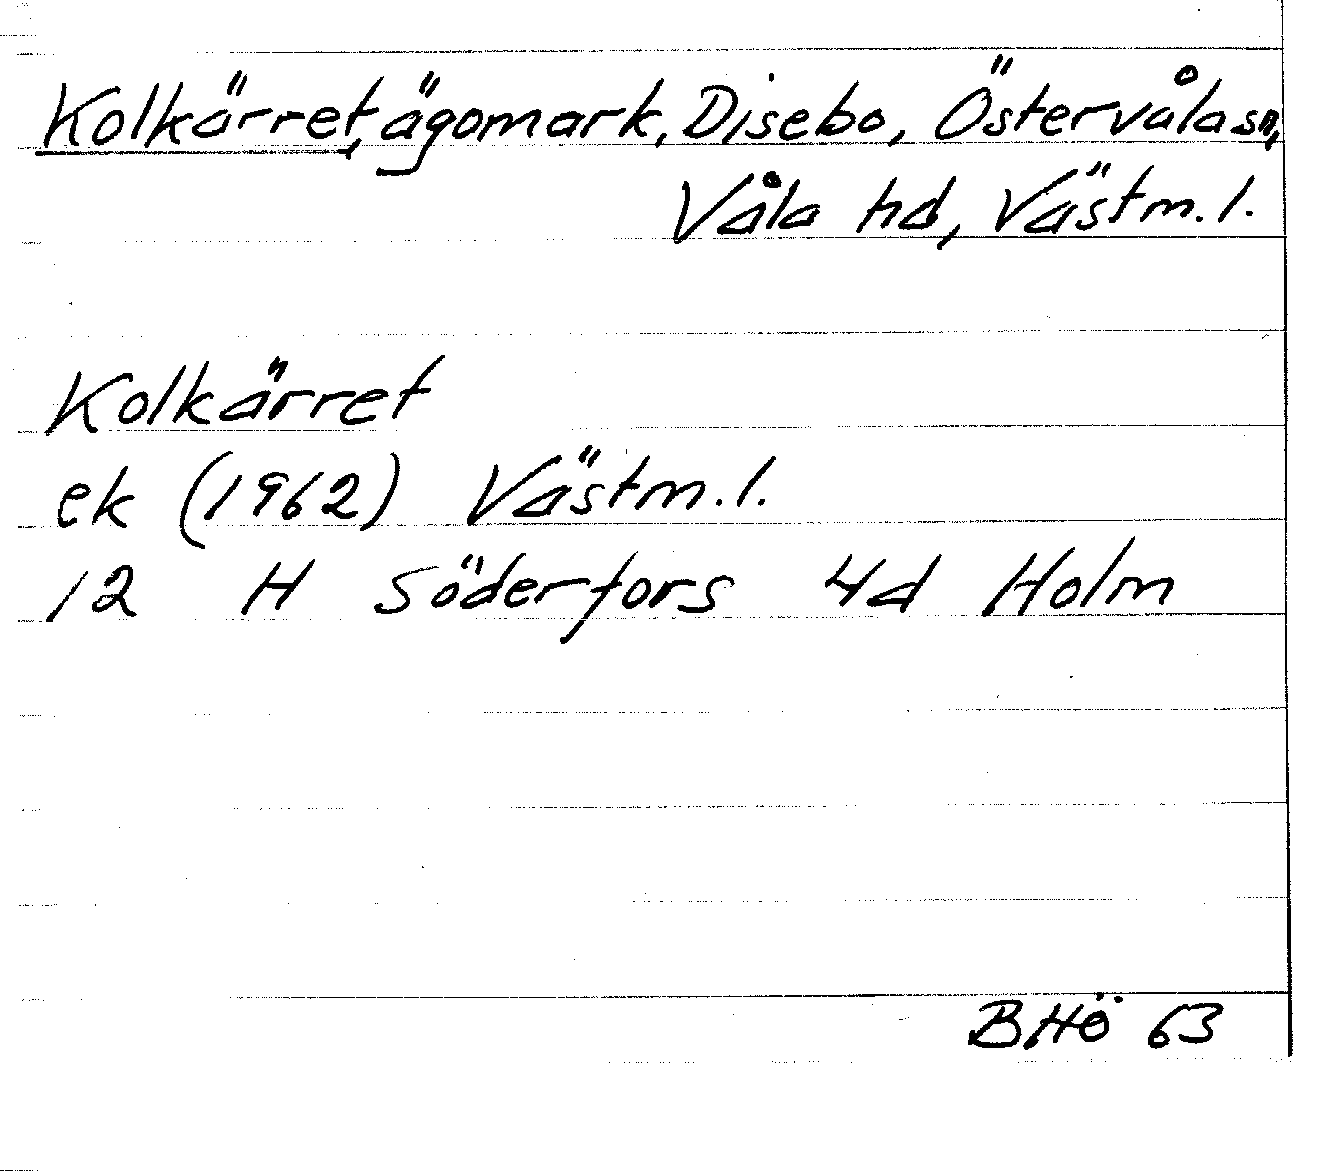 Kolkärret, ägomark, Disebo, Östervåla sn,
Våla hd, Västm. l.
Kolkärret
ek (1962) Västm. l.
12 H Söderfors 4d Holm
BHö 63